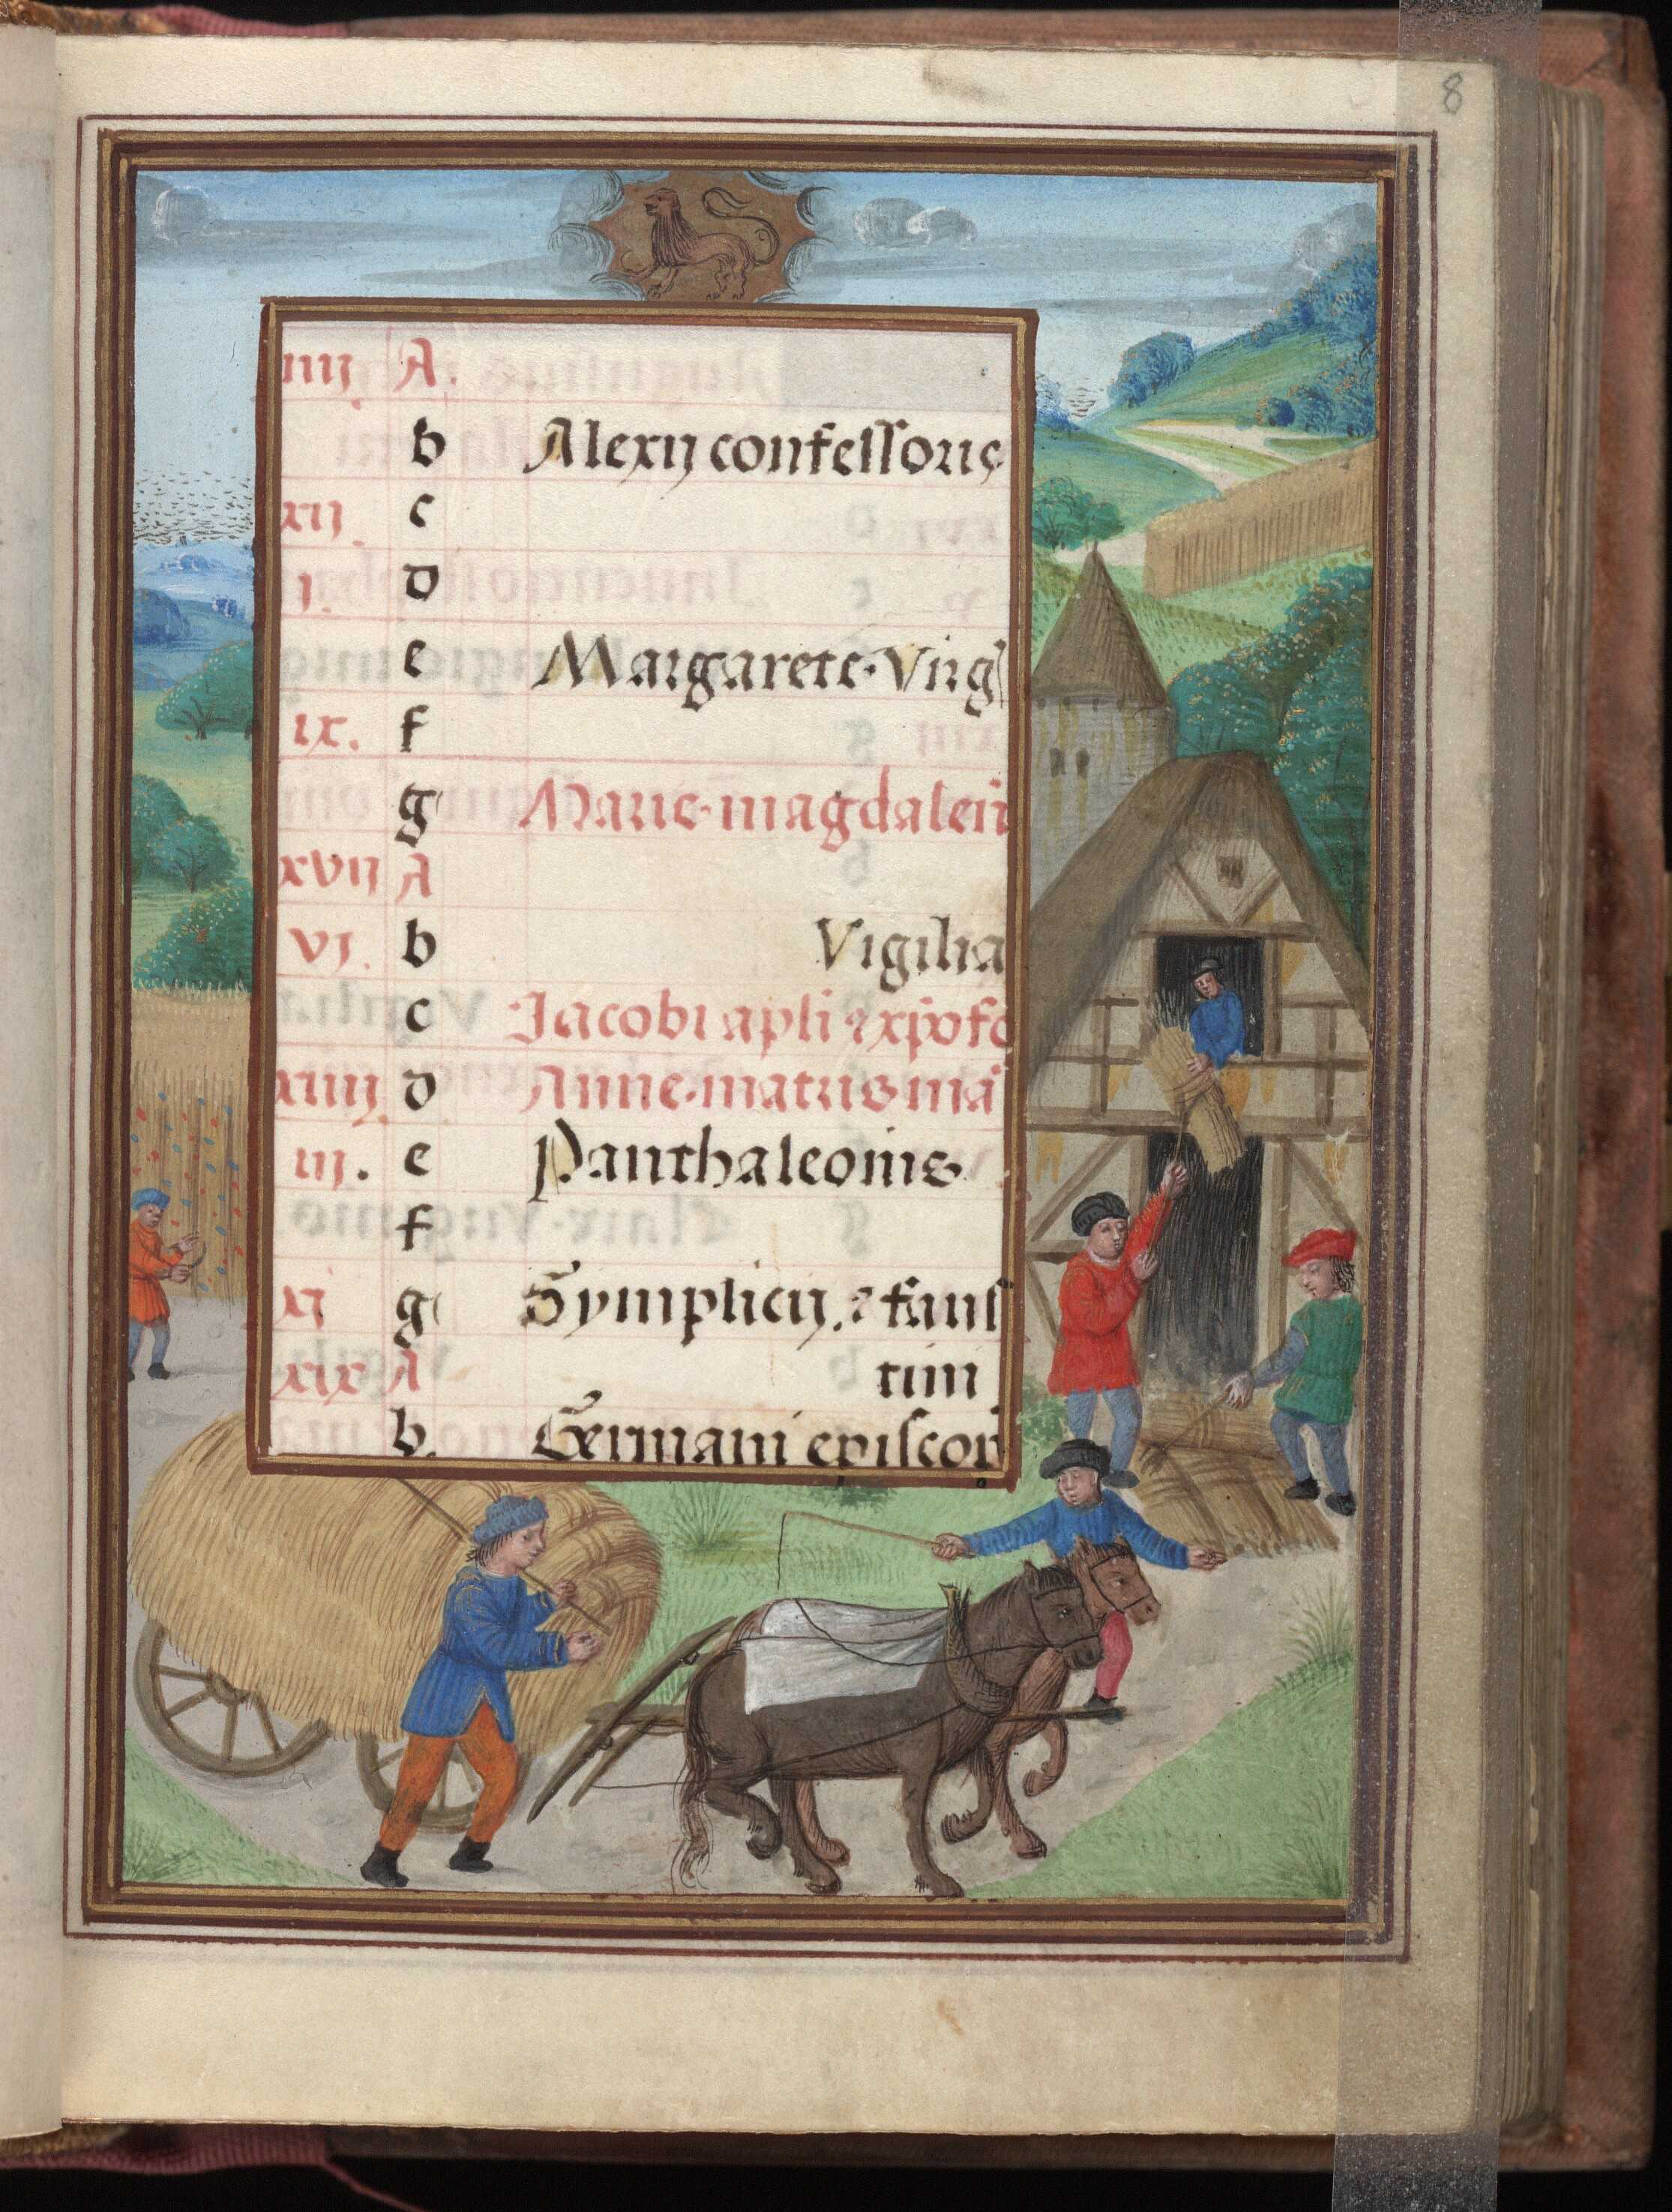 8
iiij A.
b Alexij confessoris
xij c
i. d
e Margarete. Virg
ix. f
g Marie. magdalen
xvij A
vi. b Vigilia
c Jacobi apli ⁊ xp̄ofo
xiiij d Anne. matris ma
iij. e Panthaleonis
f
xi g Symplicij. ⁊ faus
xix A tini
b. Germani episcop